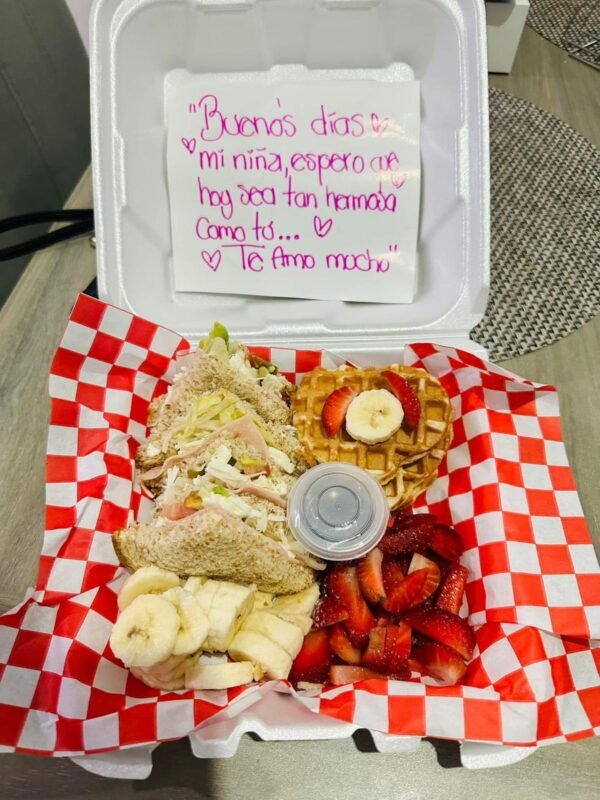 "Buenos días
mi niña, espero que
hoy sea tan hermosa
como tú...
Te Amo mucho"